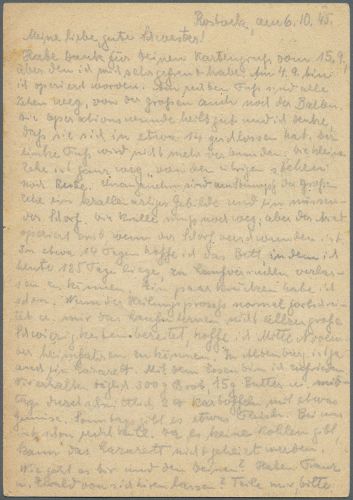 Rostock, am 6. 10. 45.
Meine liebe gute Schwester!
Habe Dank für Deinen Kartengruß vom 15.9.,
über den ich mich sehr gefreut habe. Am 4. 9. bin
ich operiert worden. Am rechten Fuß sind alle
Zehen weg, von der großen auch noch der Ballen.
Die Operationswunde heilt gut und ich denke,
daß sie sich in etwa 14 geschlossen hat. Der
linke Fuß wird nicht mehr verbunden. Die kleine
Zehe ist ganz weg, von den übrigen stehen
noch Reste. Unangenehm sind am Stumpf der großen
Zehe ein krallenartiges Gebilde und ein
der Schorf. Die Kralle muß noch weg, aber der Arzt
operiert erst wenn der Schorf verschwunden ist.
In etwa 14 Tagen hoffe ich das Bett, in dem ich
heute 125 Tage liege, zu verlas-
sen zu können. Ein paar Krücken habe ich
schon. Wenn der Heilungsprozeß normal fortschrei-
tet u. mir das Laufenlernen nicht allzu große
Schwierigkeiten bereitet, hoffe ich Mitte Novem-
ber heimfahren zu können. In Altenburg ist ja
auch ein Lazarett. Mit dem Essen bin ich zufrieden.
Wir erhalten täglich 300 g Brot 15 g Butter u. mit-
tags durchschnittlich Kartoffeln mit etwas
Gemüse. Sonntags gibt es etwas Fleisch. Bei uns
ist schon recht kalt. Da es keine Kohlen gibt,
kann das Lazarett nicht geheizt werden.
Wie geht es Dir und den Deinen? Haben Franz
u. Ewald von sich hören lassen? Teile mir, bitte